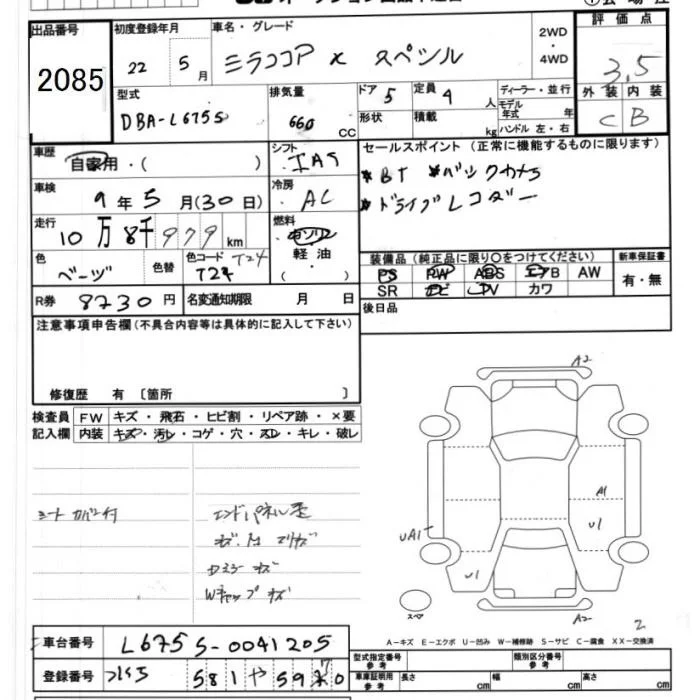 出品番号 初度登録年月 車名・グレード 2WD・4WD 評価点
2085 22 5月 ミラココア X スペシャル 3.5
型式 排気量 ドア 定員 ディーラー・並行 外装 内装
DBA-L675S 660 CC 5 4人 モデル年式 年 C B
形状 積載 kg ハンドル 左・右
車歴 シフト セールスポイント(正常に機能するものに限ります)
自家用・( ) IAS
車検 冷房 *BT *バックカメラ
9年5月(30日) AC *ドライブレコーダー
走行 燃料
10万8千979km ガソリン
軽油・( )
色 色替 色コード T24 装備品(純正品に限り○をつけてください) 新車保証書
ベージュ T24 PS PW ABS エアB AW 有・無
R券 8730円 名変通知期限 月 日 SR ナビ TV カワ
注意事項申告欄(不具合内容等は具体的に記入して下さい) 後日品
修復歴 有 〔箇所 〕
検査員 FW キズ・飛石・ヒビ割・リペア跡・×要
記入欄 内装 キズ・汚レ・コゲ・穴・スレ・キレ・破レ
A2
シートカバー付 エンドパネル歪
A1
U1
UA1
ダスラー キズ
Wキャップ キズ
U1
スペア
A2
2
A-キズ E-エクボ U-凹み W-補修跡 S-サビ C-腐食 XX-交換済
車台番号 L675S-0041205
型式指定番号 参考 類別区分番号 参考
登録番号 581 や 59 0
車庫証明用 参考 長さ cm 幅 cm 高さ cm